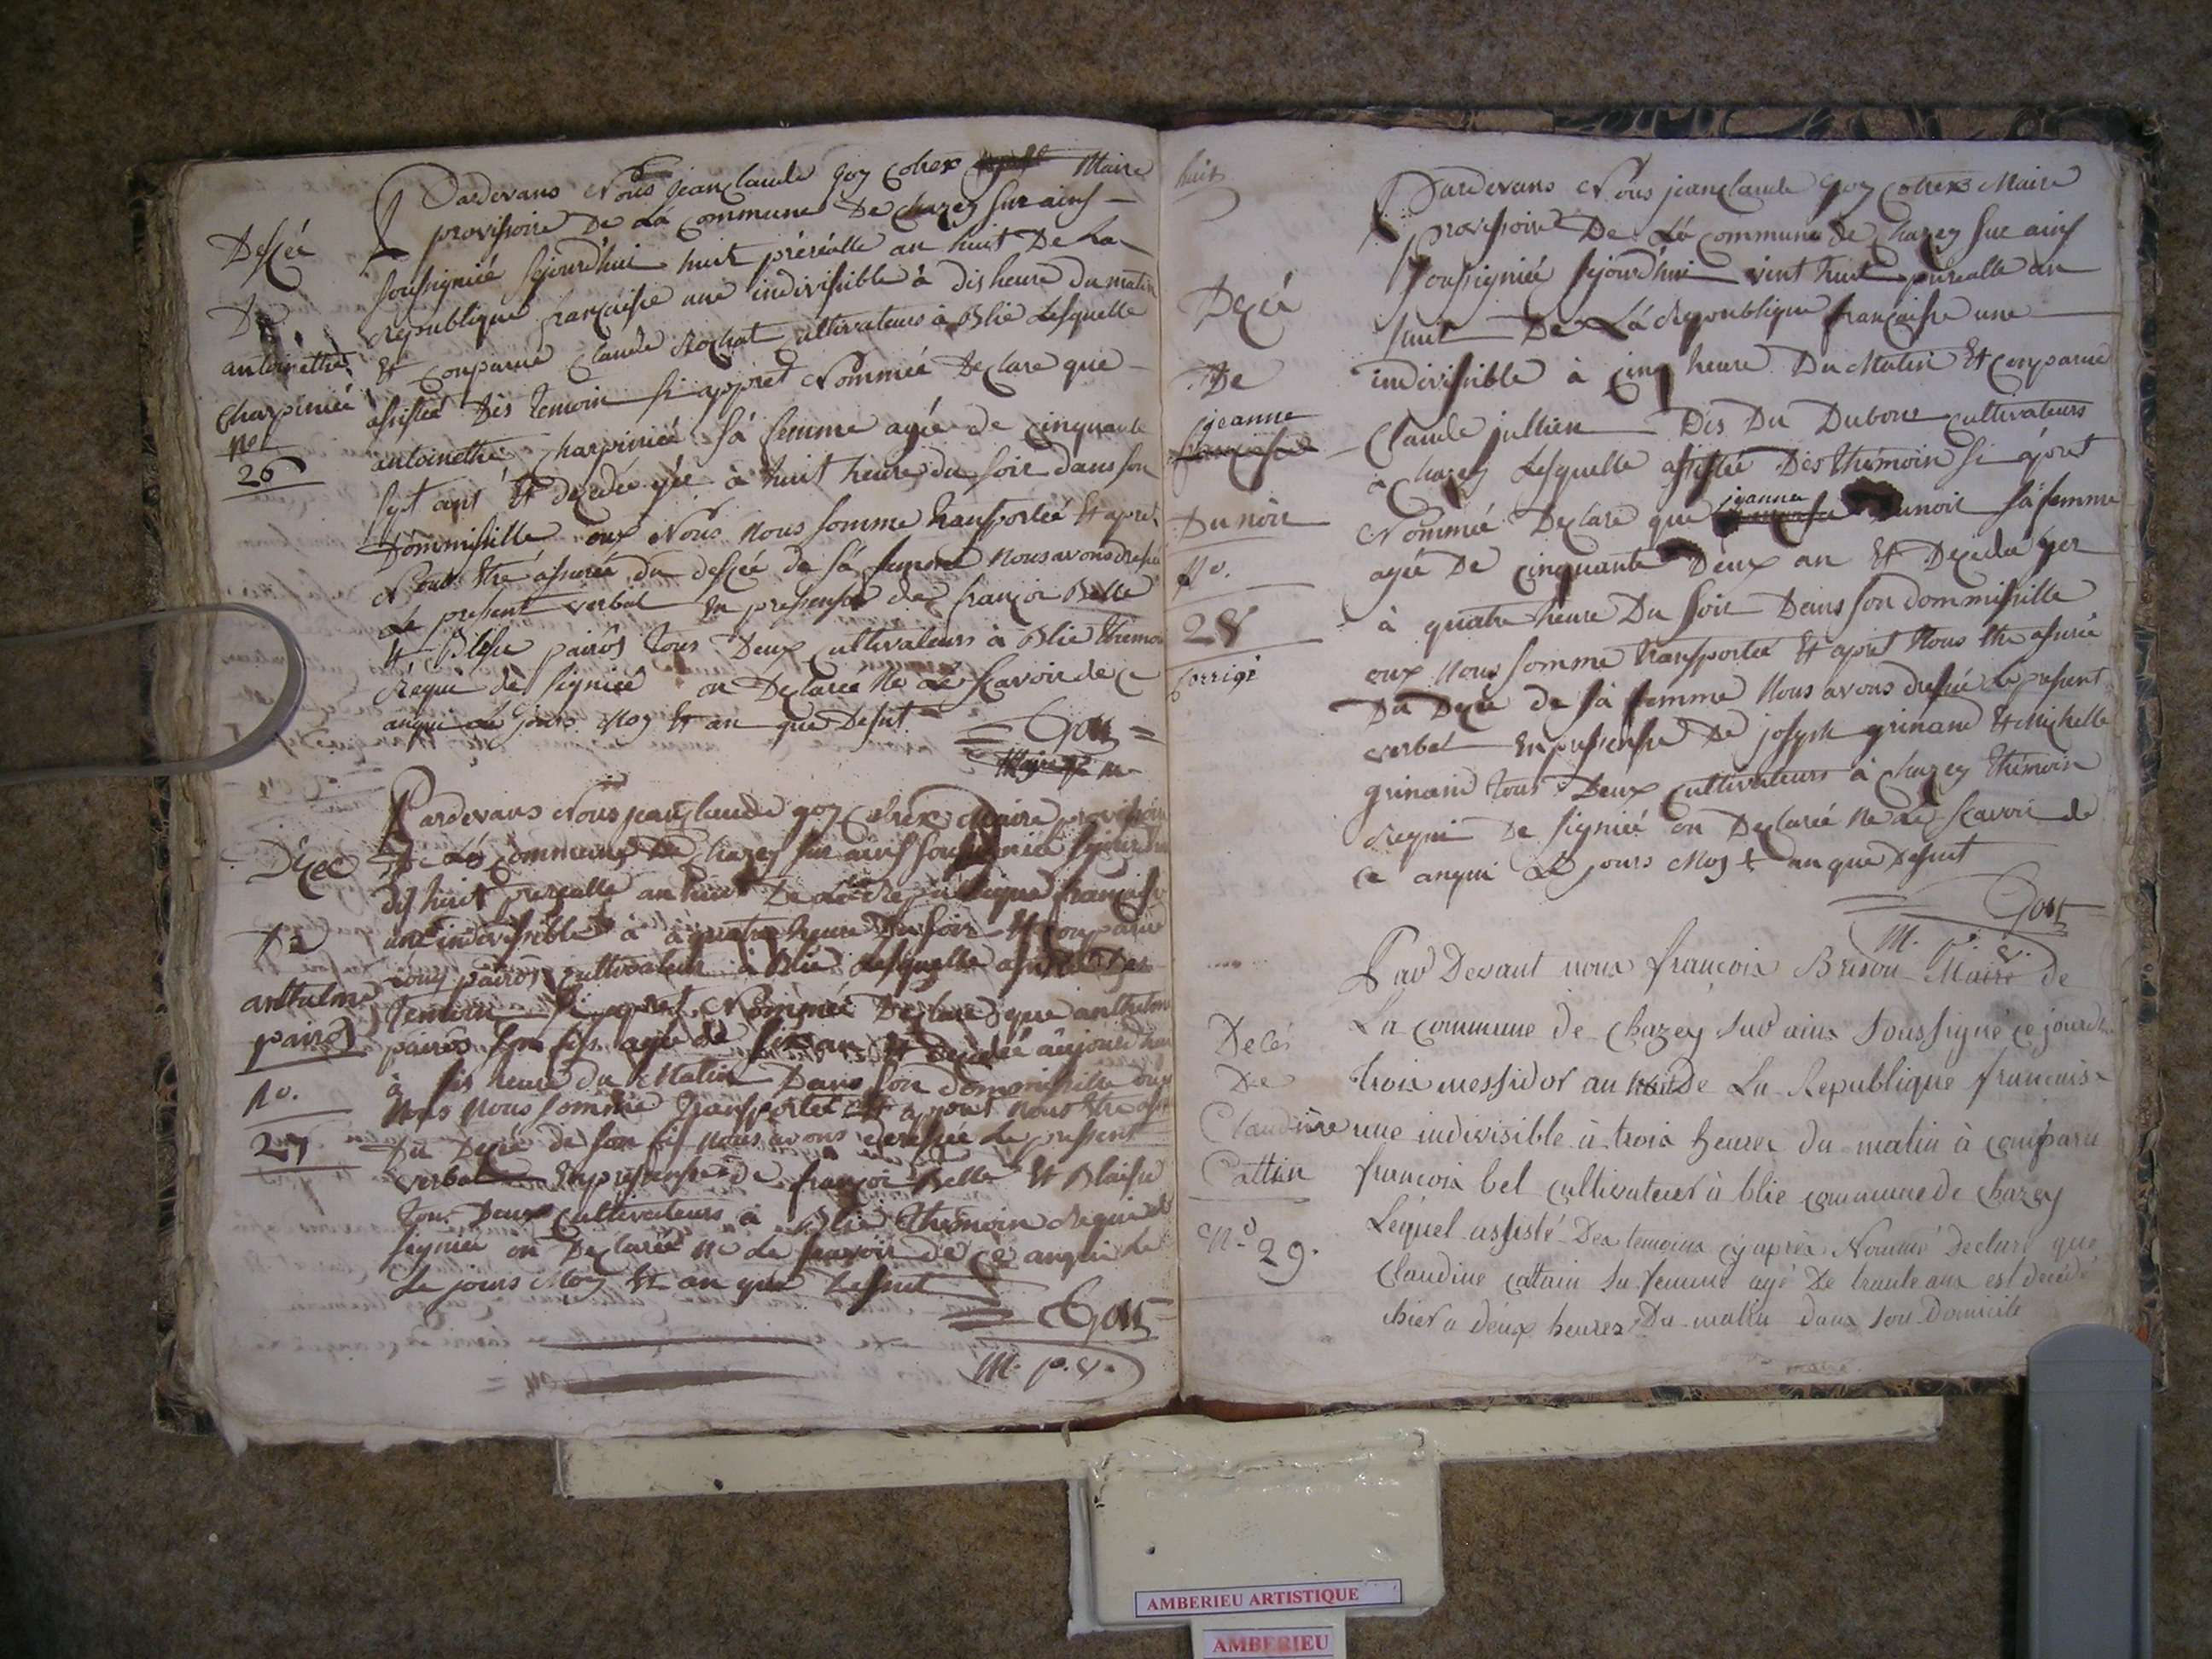 Pardevans Nous Jeanclaude goy Maire
provisoire De La Commune De Chazey sur ains
soussigniié sejourdhui huit preréalle an huit De La
Republique française une indivisible à dis heure du matin
Et conparue Claude Rochat cultivateurs à Blie Lesquelle
assistée Dès temoin si appret Nommée Declare que
antoinethe Charpiniée sá femme agée de cinquante
sept ans Et dexedée yée à huit heures du soir dans son
Dommisille oux Nous nous somme transportée Et apret
Nous être assurée du desée de sá femme nous avons dressée
Le present verbal en pressensse de françoi Belle
Et Blesse pairôs tous Deux cultivateurs à Blie thémoin
Requi de signieé on Declarée Ne Le scavoir de ce
anqui Le jours Moy Et an que Desut
Goy
Desée
De
antoinethe
Charpiniée
No
26
Pardevans Nous jeanclaude goy Maire provisoire
De Lá Commune De Chazey sur ains soussigniié sejourdhui
dishuit preréalle an huit De La Republique française
une indivisible à à quatre heure Du soir Et conparue
pairôs cultivateur à Blie Lesquelle assistée Des
temoin si apret Nommée Declare que anthelme
pairôs son fis agée de six an Et dexedée aujourdhui
à sis heure du Matin Dans son dommisille oux
Nous Nous somme transportée Et appret nous être
Du Dexée de son fis nous avons dressée Le pressent
verbal en pressensse de françoi Belle Et Blaisse
tous Deux cultivateurs à Blie thémoin Requi de
signiée on Declarée Ne Le scavoir de ce anqui Le
Le jours Moy Et an que Desut
Goy
M. p. v.
Dexee
De
anthelme
pairôs
No.
27
huit
Pardevans Nous jeanclaude goy Maire
Provisoire De Lá Commune de Chazey sur ains
soussigniée sejourdhui vint huit preréalle an
huit De Lá Republique française une
indivisible à cinq heure Du Matin Et conparue
Claude jullien Dis Du Dubour cultivateurs
à Chazey Lesquelle assistée Dès thémoin si ápret
Nommée Declare que jeanne Dunoir sá femme
agée De cinquante Deux an Et Dexedée yer
à quatre heure Du soir Dans son dommisille
oux nous somme transportée Et apret Nous être assurée
Du Dexée de sá femme Nous avons dressée Le present
verbal en pressensse De joseph grinand Et Michelle
grinand tous Deux cultivateurs à Chazey thémoin
Requi De signiée on Declarée Ne Le scavoir de
ce anqui Le jours Moy Et an que Desut
Goy
M. P. v.
Dexée
De
jeanne
Dunoir
No.
28
Corrigé
Par Devant nous françois Brison Maire de
La commune de Chazey sur ains soussigné ce jourdhui
trois messidor an huit De La Republique francaise
une indivisible à trois heures du matin à comparu
francois bel cultivateur à blie commune de Chazey
Lequel assisté Des temoins cy après Nommé Declare que
Claudine cattain sa femme agé De trante ans est decédé
hier a deux heures Du matin dans son Domicile
Decés
De
Claudine
Cattin
No
29.
AMBERIEU ARTISTIQUE
AMBERIEU